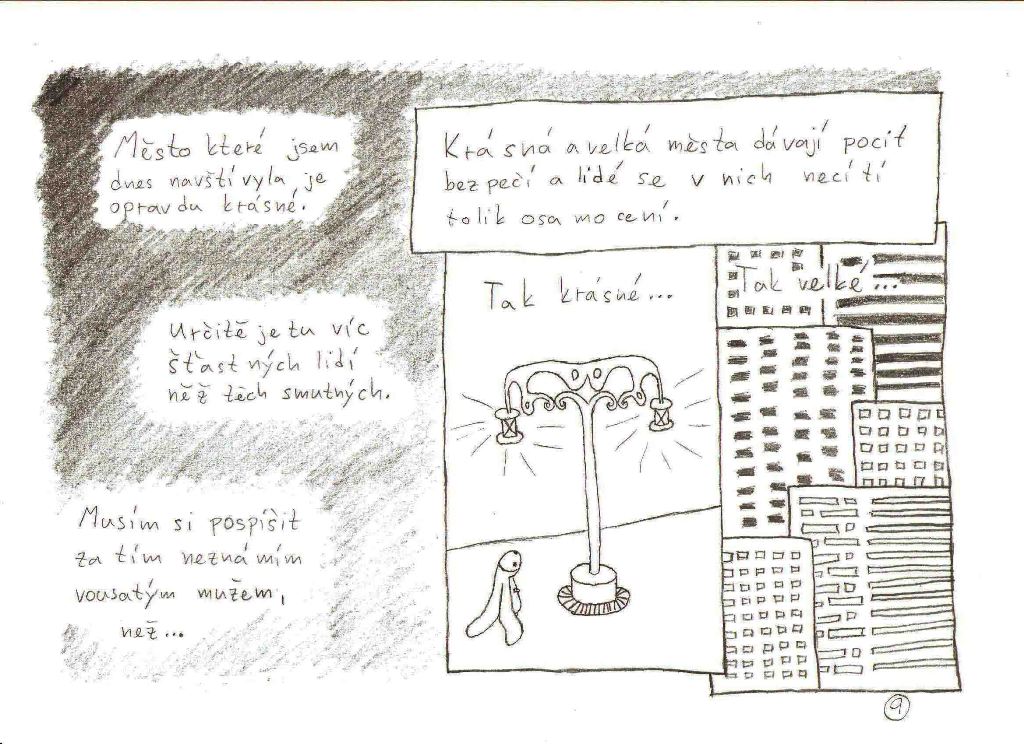 Město které jsem
dnes navštívyla je
opravdu krásné.
Určitě je tu víc
šťastných lidí
něž těch smutných.
Musím si pospíšit
za tím neznámím
vousatým mužem,
než...
Krásná a velká města dávají pocit
bezpečí a lidé se v nich necítí
tolik osamocení.
Tak krásné...
Tak velké...
9